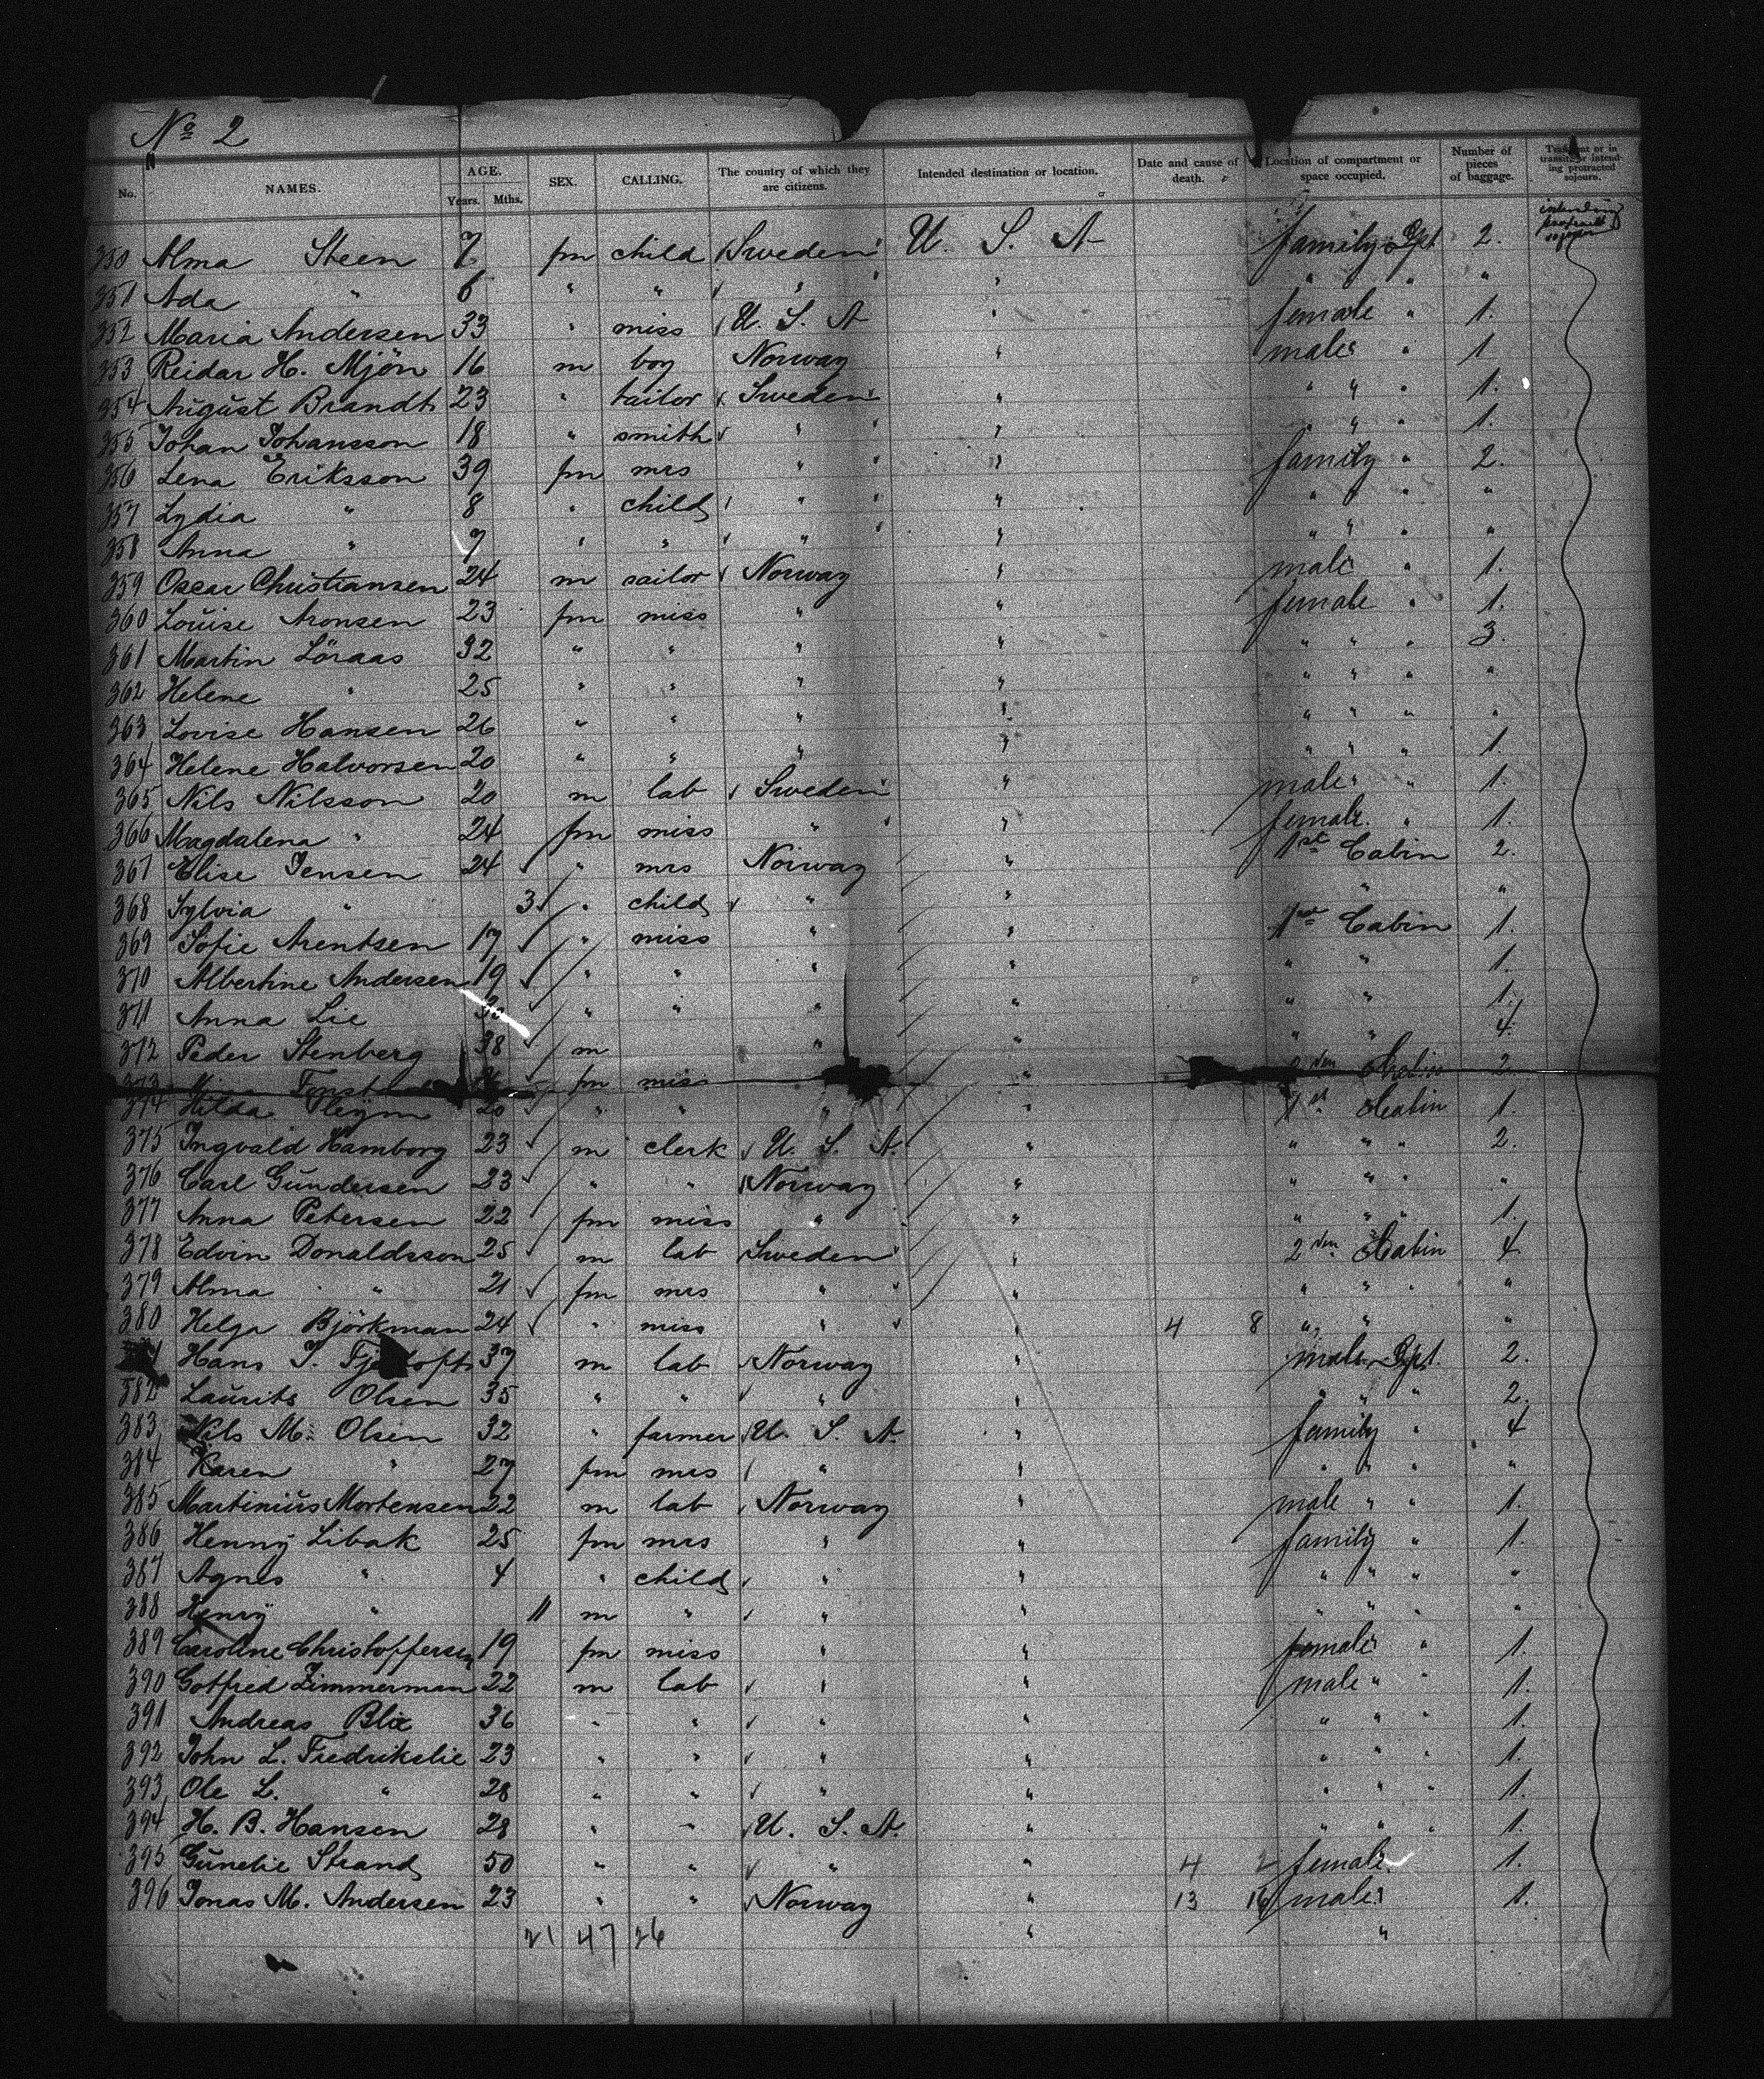 No 2
No. NAMES. AGE. Years. Mths. SEX. CALLING. The country of which they are citizens. Intended destination or location. Date and cause of death. Location of compartment or space occupied. Number of pieces of baggage. Transient or in transit or intending protracted sojourn.
350 Alma Steen 7 fm child Sweden U. S. A family Dpt. 2. intending protracted sojourn
351 Ada " 6 " " " " " " " "
352 Maria Andersen 33 " miss U. S. A " female " 1.
353 Reidar H. Mjön 16 m boy Norway " male " 1
354 August Brandt 23 " tailor Sweden " " " " 1.
355 Johan Johansson 18 " smith " " " " " 1.
356 Lena Eriksson 39 fm mrs " " family " 2.
357 Lydia " 8 " child " " " " " "
358 Anna " 7 " " " " " " " "
359 Oscar Christiansen 24 m sailor Norway " male " 1.
360 Louise Aronsen 23 fm miss " " female " 1.
361 Martin Löraas 32 " " " " " " " 3.
362 Helene " 25 " " " " " " " "
363 Lovise Hansen 26 " " " " " " " "
364 Helene Halvorsen 20 " " " " " " " 1.
365 Nils Nilsson 20 m lab Sweden " male " 1.
366 Magdalena " 24 fm miss " " female " 1.
367 Elise Jensen 24 " mrs Norway " 1st Cabin 2.
368 Sylvia " 3 " child " " " "
369 Sofie Arentsen 17 " miss " " 1st Cabin 1.
370 Albertine Andersen 19 " " " " " " 1.
371 Anna Lie " " " " " " 1.
372 Peder Stenberg 38 m " " " " 4.
373 fm miss " Cabin 2.
374 Hilda 20 " " " " 1st Cabin 1.
375 Ingvald Hamborg 23 m clerk U. S. A. " " " " 2.
376 Carl Gundersen 23 " " Norway " " " " "
377 Anna Petersen 22 fm miss " " " " " 1.
378 Edvin Donaldsson 25 m lab Sweden " 2den Cabin 4
379 Alma " 21 fm mrs " " " " " "
380 Helga Björkman 24 " miss " " 4 8 " " "
Hans J. 37 m lab Norway " male Dpt. 2.
382 Laurits Olsen 35 " " " " " " " 2
383 Nils M. Olsen 32 " farmer U. S. A. " family " 4
384 Karen " 27 fm mrs " " " " " "
385 Martinius Mortensen 22 m lab Norway " male " " 1.
386 Henny Libak 25 fm mrs " " family " 1.
387 Agnes " 4 " child " " " " " "
388 Henry " 11 m " " " " " " "
389 Caroline Christoffersen 19 fm miss " " female " 1.
390 Gotfred Zimmerman 22 m lab " " male " " 1.
391 Andreas Blix 36 " " " " " " " 1.
392 John L. Fredrikslie 23 " " " " " " " 1.
393 Ole L. " 28 " " " " " " " 1.
394 H. B. Hansen 28 " " U. S. A. " " " " 1.
395 Gunelie Strand 50 " " " " 4 2 female 1.
396 Jonas M. Andersen 23 " " Norway " 13 16 male 1.
21 47 26 " "